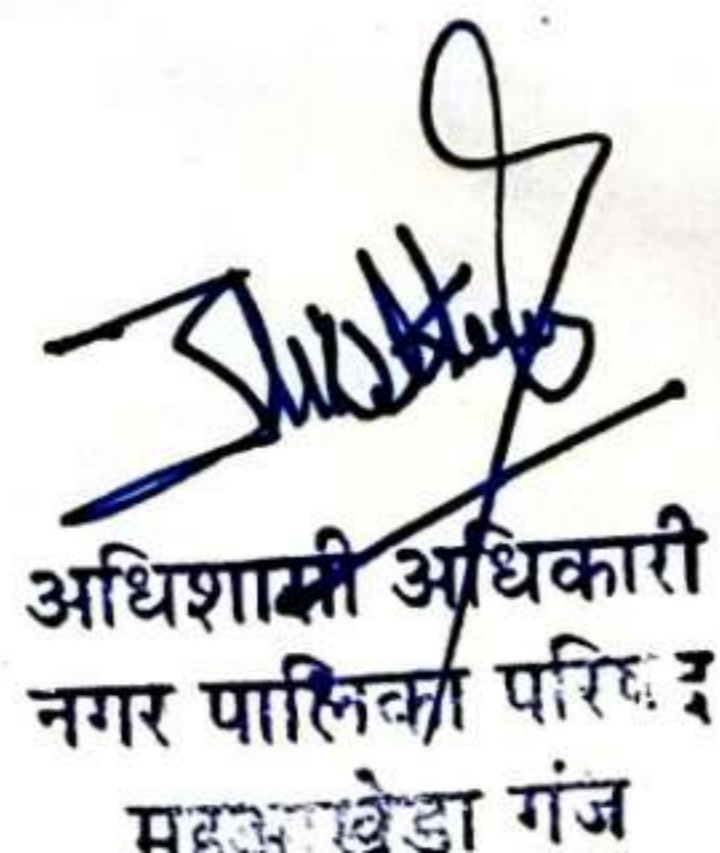 अधिशासी अधिकारी
नगर पालिका परिषद
महुआखेडा गंज